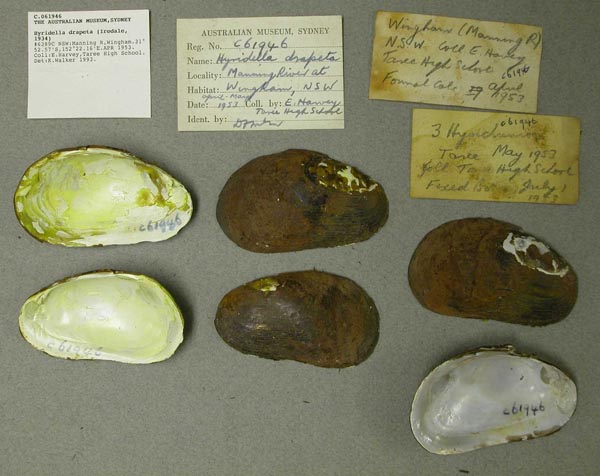 C.061946
THE AUSTRALIAN MUSEUM, SYDNEY
Hyridella drapeta (Iredale,
1934)
NSW:Manning R,Wingham.31°
52.57'S,152°22.16'E.APR 1953.
Coll:E.Harvey,Taree High School.
Det:K.Walker 1992.
AUSTRALIAN MUSEUM, SYDNEY
Reg. No. C61946
Name: Hyridella drapeta
Locality: Manning River at
Habitat: Wingham, NSW
April-May
Date: 1953 Coll. by: E. Harvey
Taree High School
Ident. by:
Wingham (Manning R)
N.S.W. Coll E. Harvey
Taree High School
C61946
Formal Calc April
1953
C61946
3 Hyridunio
Taree May 1953
Coll Taree High School
Fixed July 1
1953
C61946
C61946
C61946